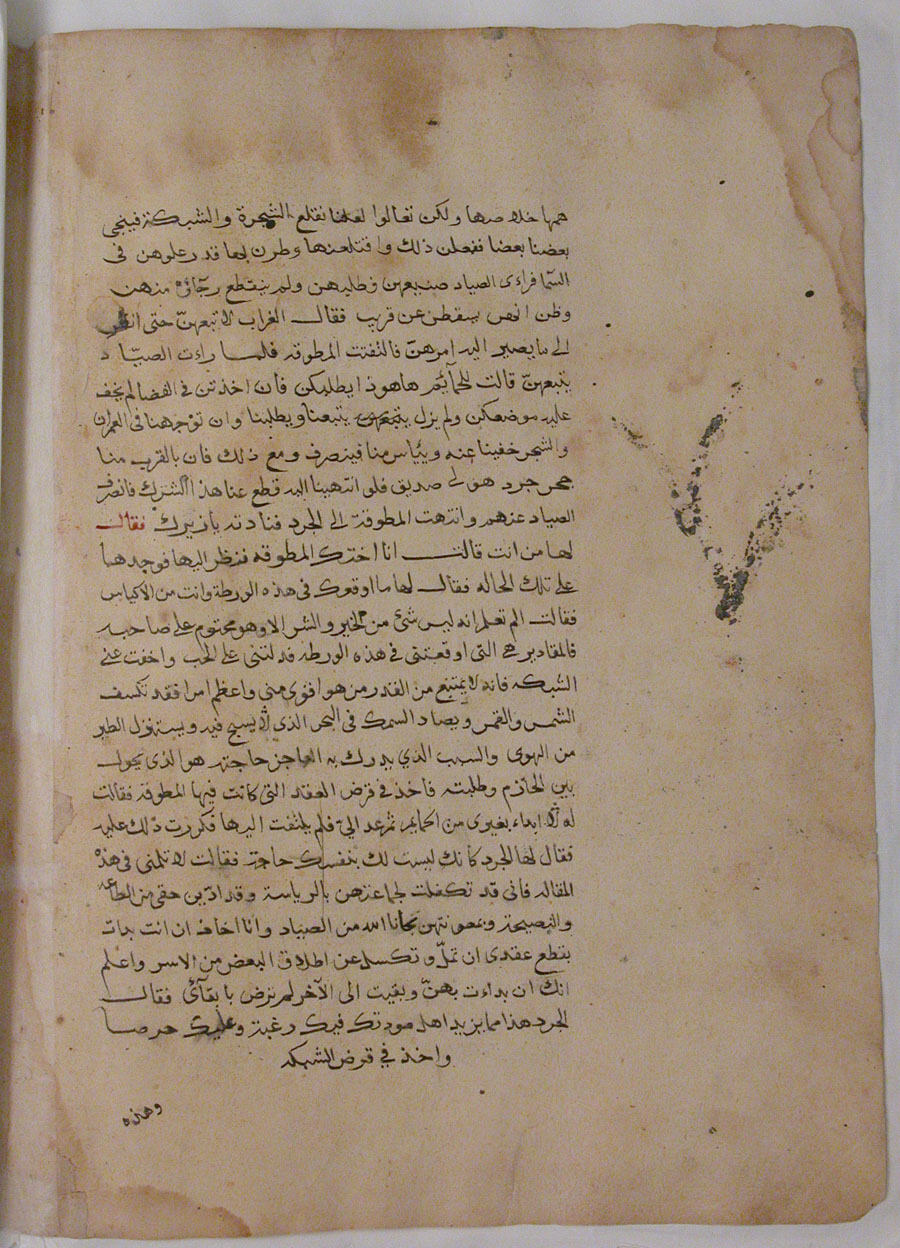 همها خلاصها ولكن تعالوا لعلنا نقلع الشجرة والشبكة فينجى
بعضنا بعضا ففعلن ذلك واقتلعنها وطرن بها قدر علوهن فى
السما فراءى الصياد صنيعهن وطلبهن ولم ينقطع رجآؤه منهن
وظن انهن يسقطن عن قريب فقال الغراب لاتبعهنّ حتى انظر
الى ما يصير اليه امرهنّ فالتفتت المطوقه فلما راءت الصيّاد
يتبعهنّ قالت للحمآيم هاهوذا يطلبكن فان اخذتن فى الفضا لم يخف
عليه موضعكن ولم يزل يتبعنا ويطلبنا وان توجهنا فى العمران
والشجر خفينا عنه وييأس منا فينصرف ومع ذلك فان بالقرب منا
جحر جرد هو لى صديق فلو انتهينا اليه قطع عنا هذا الشرك فانصرف
الصياد عنهم وانتهت المطوقة الى الجرد فنادته يا زيرك فقال
لها من انت قالت انا اختك المطوقه فنظر اليها فوجدها
على تلك الحاله فقال لها ما اوقعك فى هذه الورطة وانت من الاكياس
فقالت الم تعلم انه ليس شئ من الخير والشر الا وهو محتوم على صاحبه
فالمقادير هى التى اوقعتنى فى هذه الورطه قد لتنى على الحب واخفت عنى
الشبكه فانه لا يمتنع من القدر من هو اقوى منى واعظم امرا فقد تكسف
الشمس والقمر ويصاد السمك فى البحر الذى لا يسبح فيه ويستنزل الطير
من الهوى والسبب الذي يدرك به العاجز حاجته هو الذى يحول
بين الحازم وطلبته فاخذ فى قرض العقد التى كانت فيها المطوقه فقالت
له ابداء بغيرى من الحمايم ثم عد الىّ فلم يلتفت اليها فكررت ذلك عليه
فقال لها الجرد كانك ليست لك بنفسك حاجة فقالت لا تلمنى فى هذه
المقاله فانى قد تكفلت لجماعتهن بالرياسة وقد ادّين حقى من الطاعه
والنصيحة وبمعونتهن نجانا الله من الصياد وانا اخاف ان انت بدات
بقطع عقدى ان تملّ وتكسل عن اطلاق البعض من الاسر واعلم
انك ان بداءت بهنّ وبقيت الى الآخر لم ترض بابقآئ فقال
الجرد هذا مما يزيد اهل مودتك فيك رغبة وعليك حرصا
واخذ في قرض الشبكه
وهذه